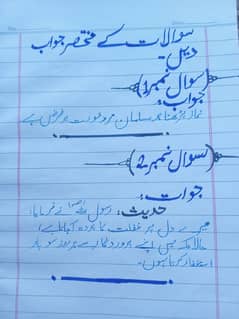 سوالات کے مختصر جواب
دیں -
(سوال نمبر 1)
جواب:
نماز پڑھنا ہر مسلمان مرد و عورت پر فرض ہے
(سوال نمبر 2)
جواب:
حدیث: رسول ﷺ نے فرمایا:
میرے دل پر غفلت کا پردہ
حالانکہ میں اپنے پروردگار سے ہر روز سو بار
استغفار کرتا ہوں۔